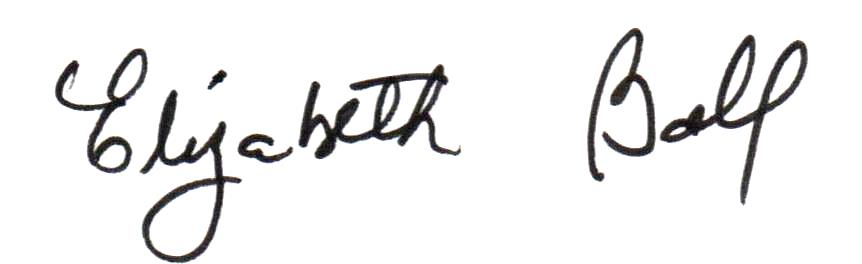 Elizabeth Ball